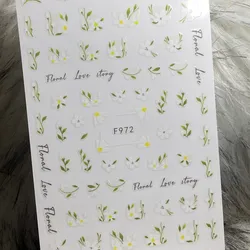 Floral Love story
F972
Floral Love story
Floral Love
Floral Love
Floral